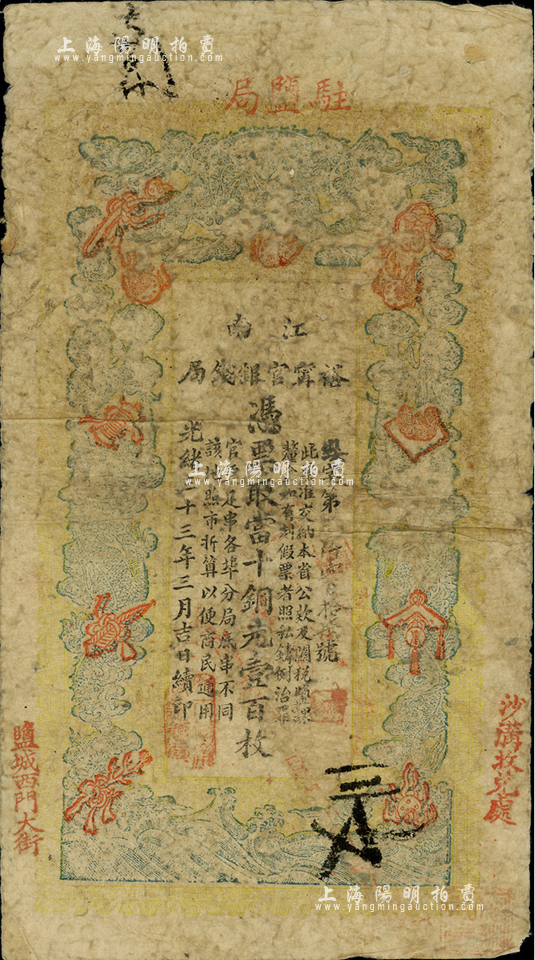 上海陽明拍賣
www.yangmingauction.com
駐鹽局
江南
裕甯官銀錢局
字第 號
憑票取當十銅元壹百枚
此票准交納本省公款及關稅鹽課
釐金如有剃假票者照私鑄例治罪
官 足串各埠分局底串不同
該 照市折算以便商民通用
光緒 十三年三月吉日續印
上海陽明拍賣
www.yangmingauction.com
沙溝收兌處
鹽城西門大街
上海陽明拍賣
www.yangmingauction.com